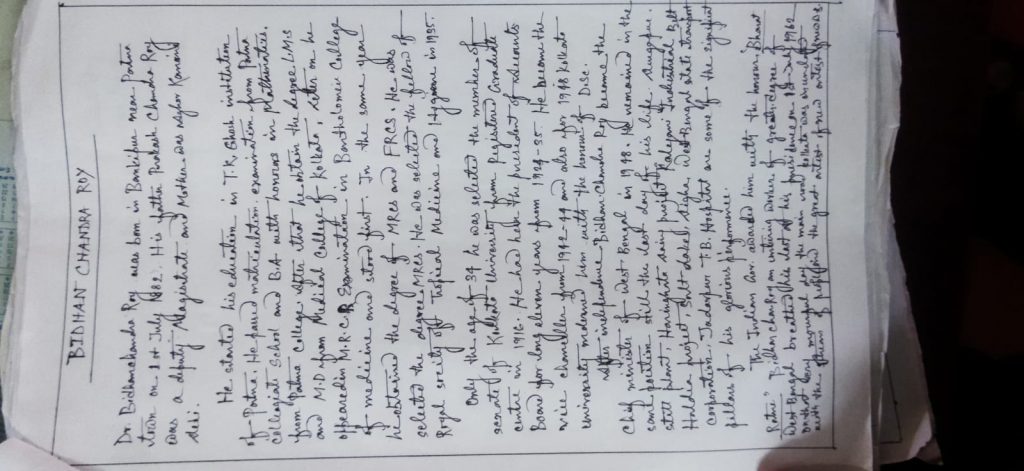 BIDHAN CHANDRA ROY
Dr. Bidhanchandra Roy was born in Bankibur near Patna
town on 1st July 1882. His father Prakash Chandra Roy
was a deputy Magistrate and Mother was Aghor Kamini
debi.
He started his education in T.K. Ghosh institution
of Patna. He passed matriculation examination from Patna
collegiate School and B.A with honours in
from Patna College. After that he obtain the degree L.M.S
and M.D from Medical College of Kolkata, later on he
appeared in M.R.C.P. Examination in Bartholomew College
of medicine and stood first. In the same year
he obtained the degree of MRCS and FRCS. He was
selected the degree MRCS. He was selected the fellow of
Royal society of Tropical Medicine and Hygene in 1935.
Only the age of 34 he was selected the member of
senate of Kolkata University from Registered Graduate
centre in 1916. He had held the president of
Board for long eleven years from 1924-35. He become the
vice chancellor from 1942-44 and also for 1948 Kolkata
university adorned him with the honour of D.Sc.
After independence Bidhan Chandra Roy become the
Chief minister of West Bengal in 1948. He remained in the
same position till the last day of his life. Durgapur
still plant, Haringhata dairy projet, Kalyani Industrial belt
Haldia project, Salt-daked stake, West Bengal state transport
corporation, Jadavpur T.B. Hospital are some of the significant
pillars of his glorious performence.
The Indian Gov. awarded him with the honour "Bharat
Ratna". Bidhan Chan Roy an untiring worker of great degree of
West Bengal breathed his last at his residence on 1st July 1962
on that very mournful day the main road kolkata was
with the of people the great artist of new